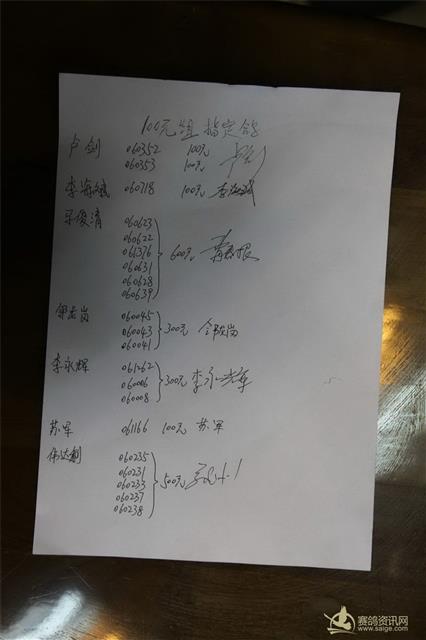 100元组指定鸽
卢剑 060352 100元
060353 100元
李海斌 060718 100元 李海斌
宋俊清 060623
060622
061376
060631 600元
060628
060639
060045
060043 300元
060041
李永辉 061262
060006 300元 李永辉
060008
苏军 061166 100元 苏军
伟达利 060235
060231
060233 500元
060237
060238
赛鸽资讯网
www.saige.com